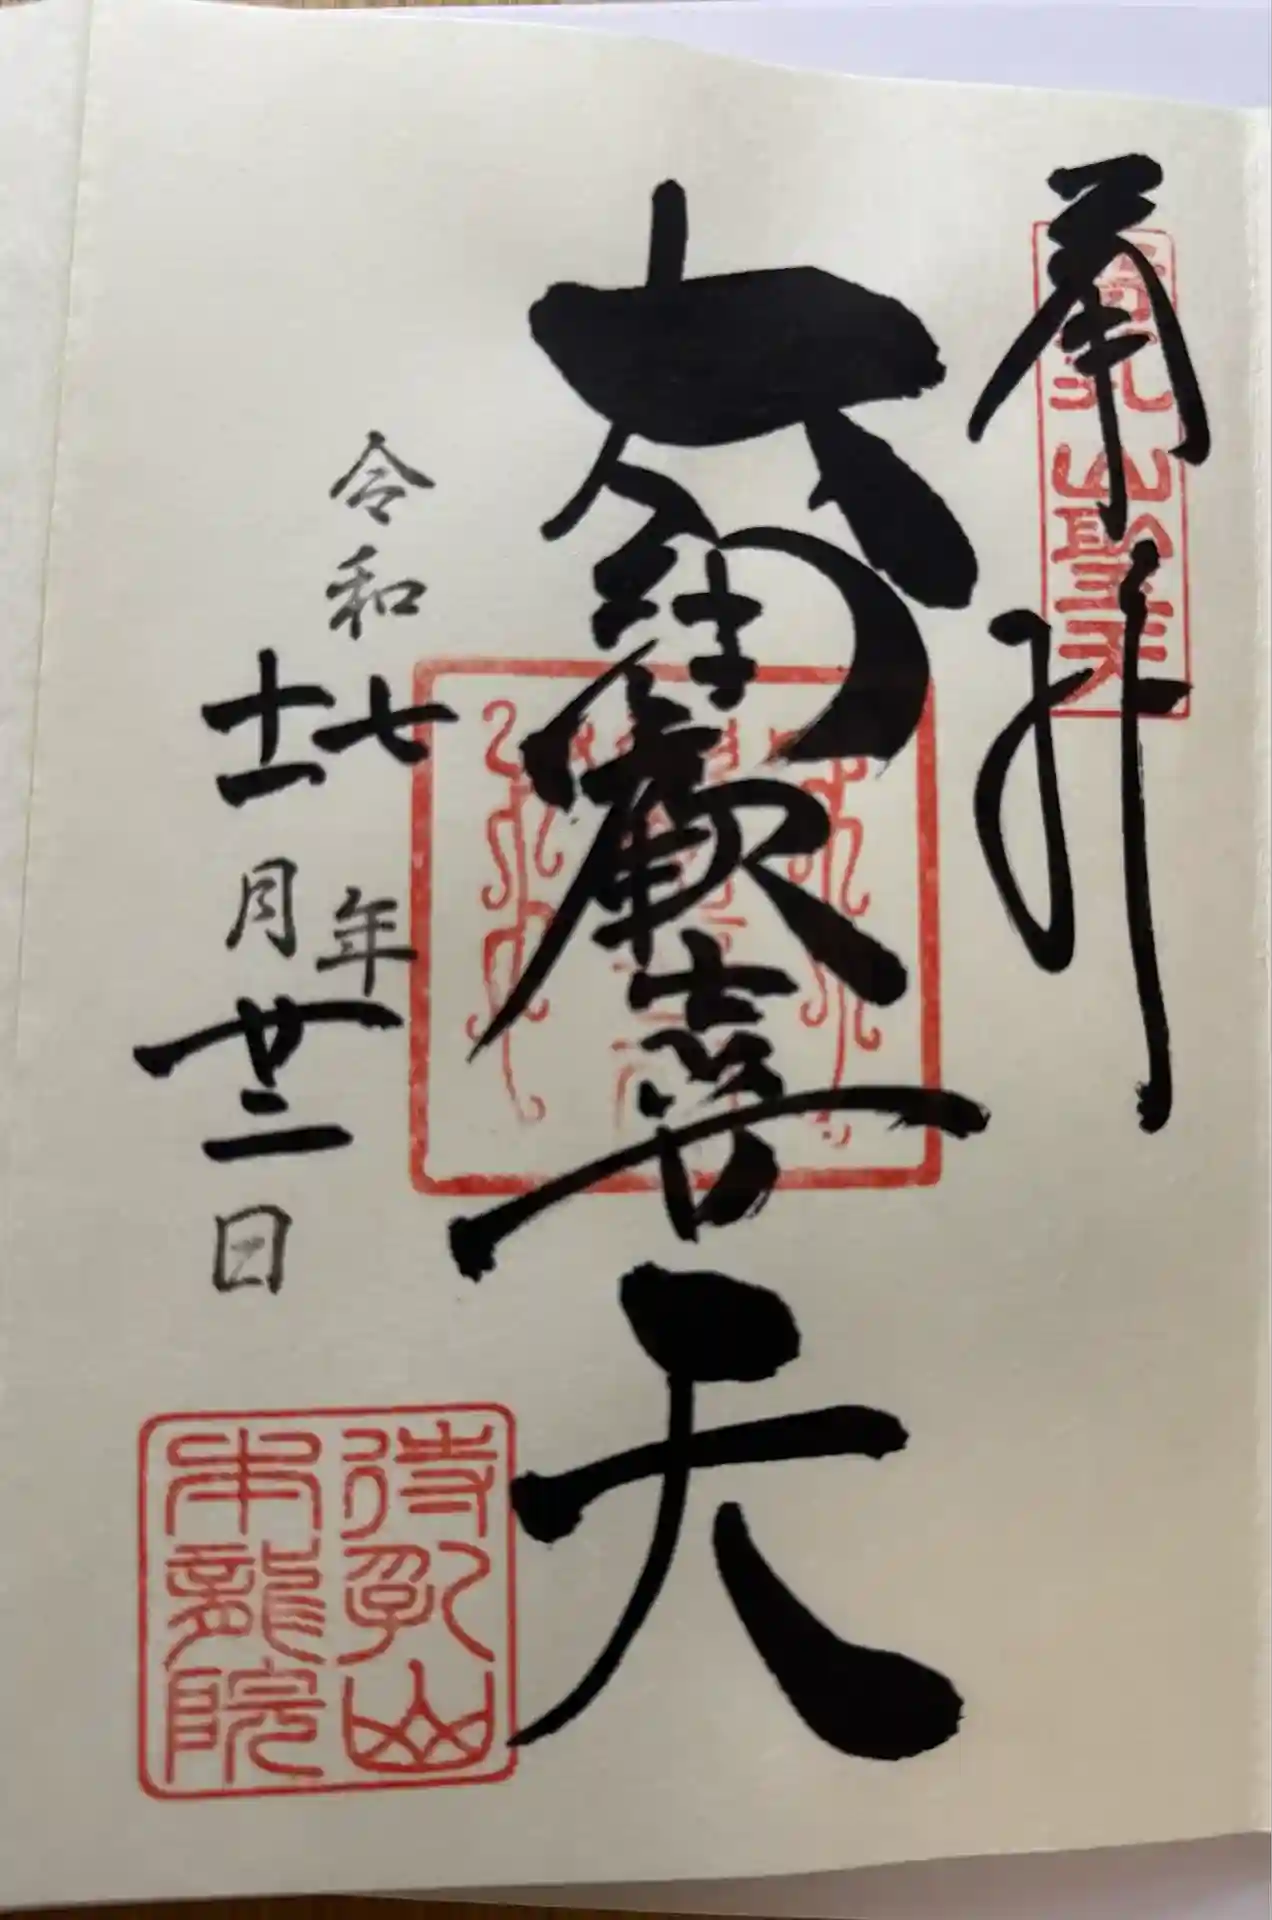 奉拝
待乳山聖天
大聖歓喜天
令和七年
十一月廿二日
待乳山
本龍院